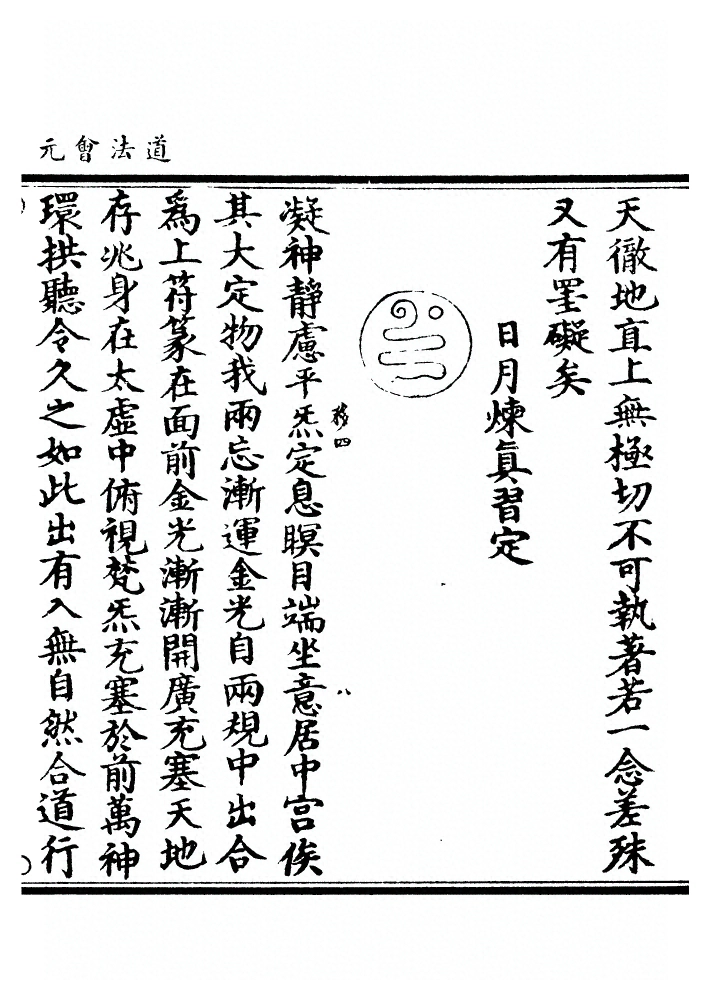 道法會元
天徹地直上無極切不可執著若一念差殊
又有罣礙矣
日月煉真習定
移四
八
凝神靜慮平炁定息瞑目端坐意居中宮俟
其大定物我兩忘漸運金光自兩規中出合
為上符篆在面前金光漸漸開廣充塞天地
存兆身在太虛中俯視梵炁充塞於前萬神
環拱聽令久之如此出有入無自然合道行